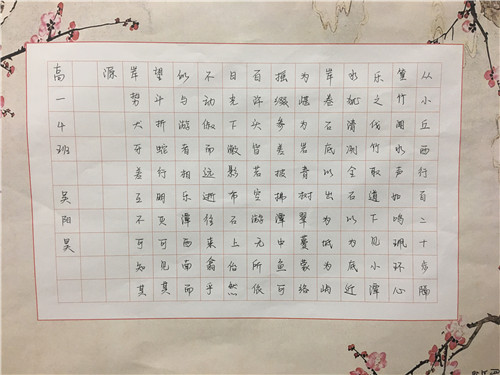 从小丘西行百二十步隔
篁竹闻水声如鸣珮环心
乐之伐竹取道下见小潭
水尤清冽全石以为底近
岸卷石底以出为坻为屿
为嵁为岩青树翠蔓蒙络
摇缀参差披拂潭中鱼可
百许头皆若空游无所依
日光下澈影布石上佁然
不动俶而远逝往来翕乎
似与游者相乐潭西南而
望斗折蛇行明灭可见其
岸势犬牙差互不可知其
源
高一4班 吴阳昊